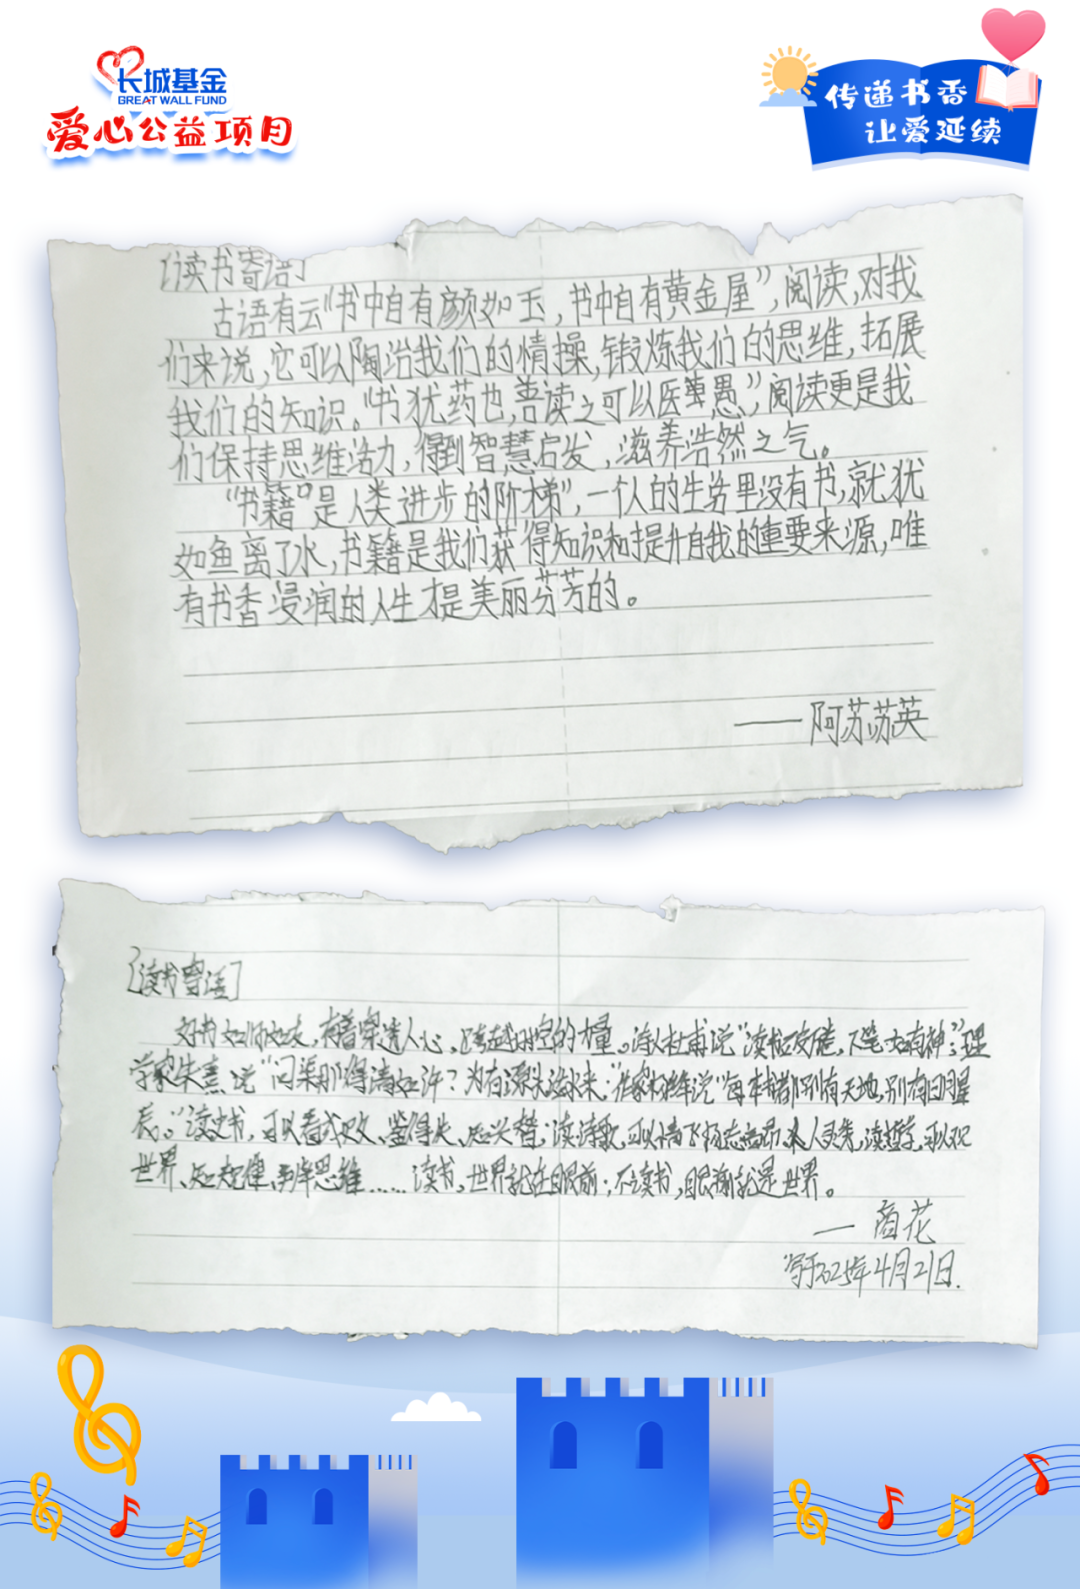 长城基金
GREAT WALL FUND
爱心公益项目
传递书香
让爱延续
[读书寄语]
古语有云“书中自有颜如玉，书中自有黄金屋”，阅读，对我
们来说，它可以陶冶我们的情操，锻炼我们的思维，拓展
我们的知识。“书犹药也，善读之可以医愚”，阅读更是我
们保持思维活力，得到智慧启发，滋养浩然之气。
“书籍”是人类进步的阶梯”，一个人的生活里没有书，就犹
如鱼离了水，书籍是我们获得知识和提升自我的重要来源，唯
有书香浸润的人生才是美丽芬芳的。
——阿苏苏英
[读书寄语]
好书如师如友，有着穿透人心、跨越时空的力量。诗人杜甫说“读书破万卷，下笔如有神”；理
学家朱熹说“问渠那得清如许？为有源头活水来；”作家 说“每本书都别有天地，别有日月星
辰。”读史书，可以看成败、鉴得失、知兴替；读诗歌，可以情飞扬志高昂、人灵秀，读哲学，可以观
世界、知规律、 思维……读书，世界就在眼前；不读书，眼前就是世界。
— 商花
写于2025年4月21日.